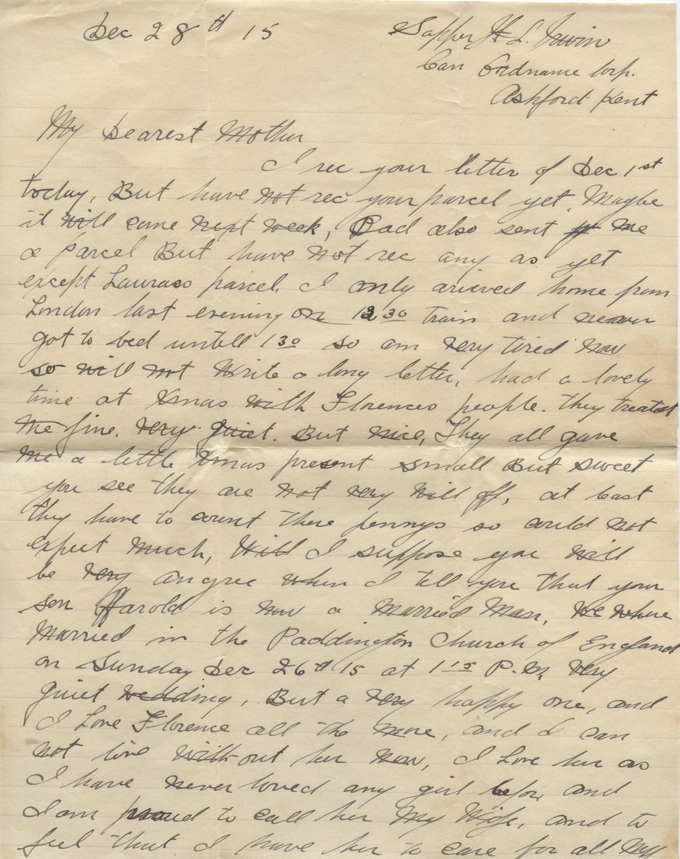 Dec 28th 15
Sapper H L. Irwin
Can Ordnance Corp.
Ashford Kent
My Dearest Mother
I rec your letter of Dec 1st
today, But have not rec your parcel yet. Maybe
it will come next week, Dad also sent me
a parcel But have not rec any as yet
except Lauras parcel. I only arieved home from
London last evening on 12 30 train and never
got to bed untill 1 30 so am very tired now
so will not write a long letter, had a lovely
time at Xmas with Florences people. They treated
me fine. Very Quiet. But nice, They all gave
me a little Xmas present small But sweet
you see they are not very well off, at least
they have to count there pennys so could not
expect much, Well I suppose you will
be very angree when I tell you that your
son Harold is now a Married Man, We where
Married in the Paddington Church of England
on Sunday Dec 26th 15 at 1 15 P.M. Very
Quiet wedding, But a very happy one, and
I Love Florence all the more, and I can
not live without her now, I Love her as
I have never loved any girl before and
I am proud to call her My Wife, and to
feel that I have her to care for all my